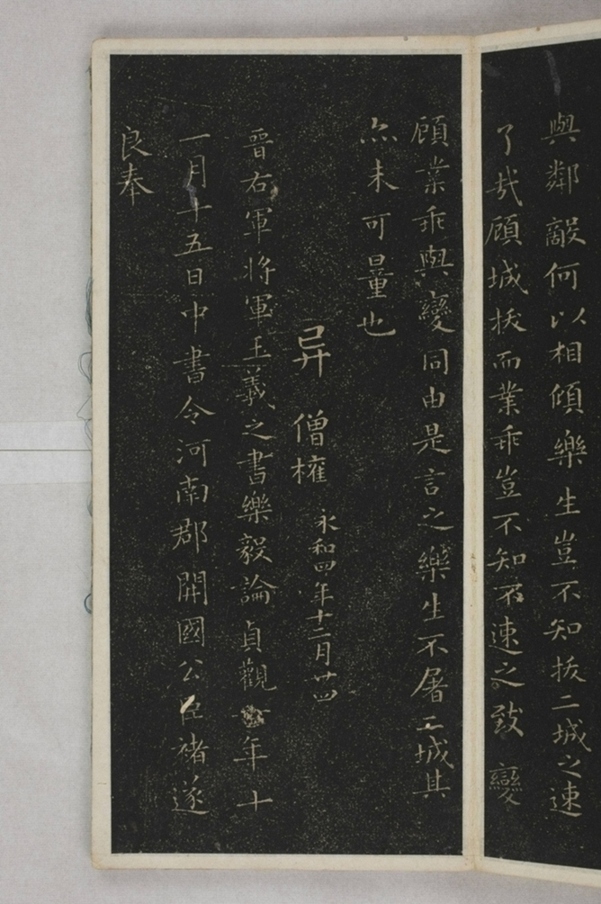 與鄰敵何以相傾樂生豈不知拔二城之速
了哉顧城拔而業乖豈不知不速之致變
顧業乖與變同由是言之樂生不屠二城其
亦未可量也
异 僧權 永和四年十二月廿四
晉右軍將軍王羲之書樂毅論貞觀 年十
一月十五日中書令河南郡開國公臣褚遂
良奉